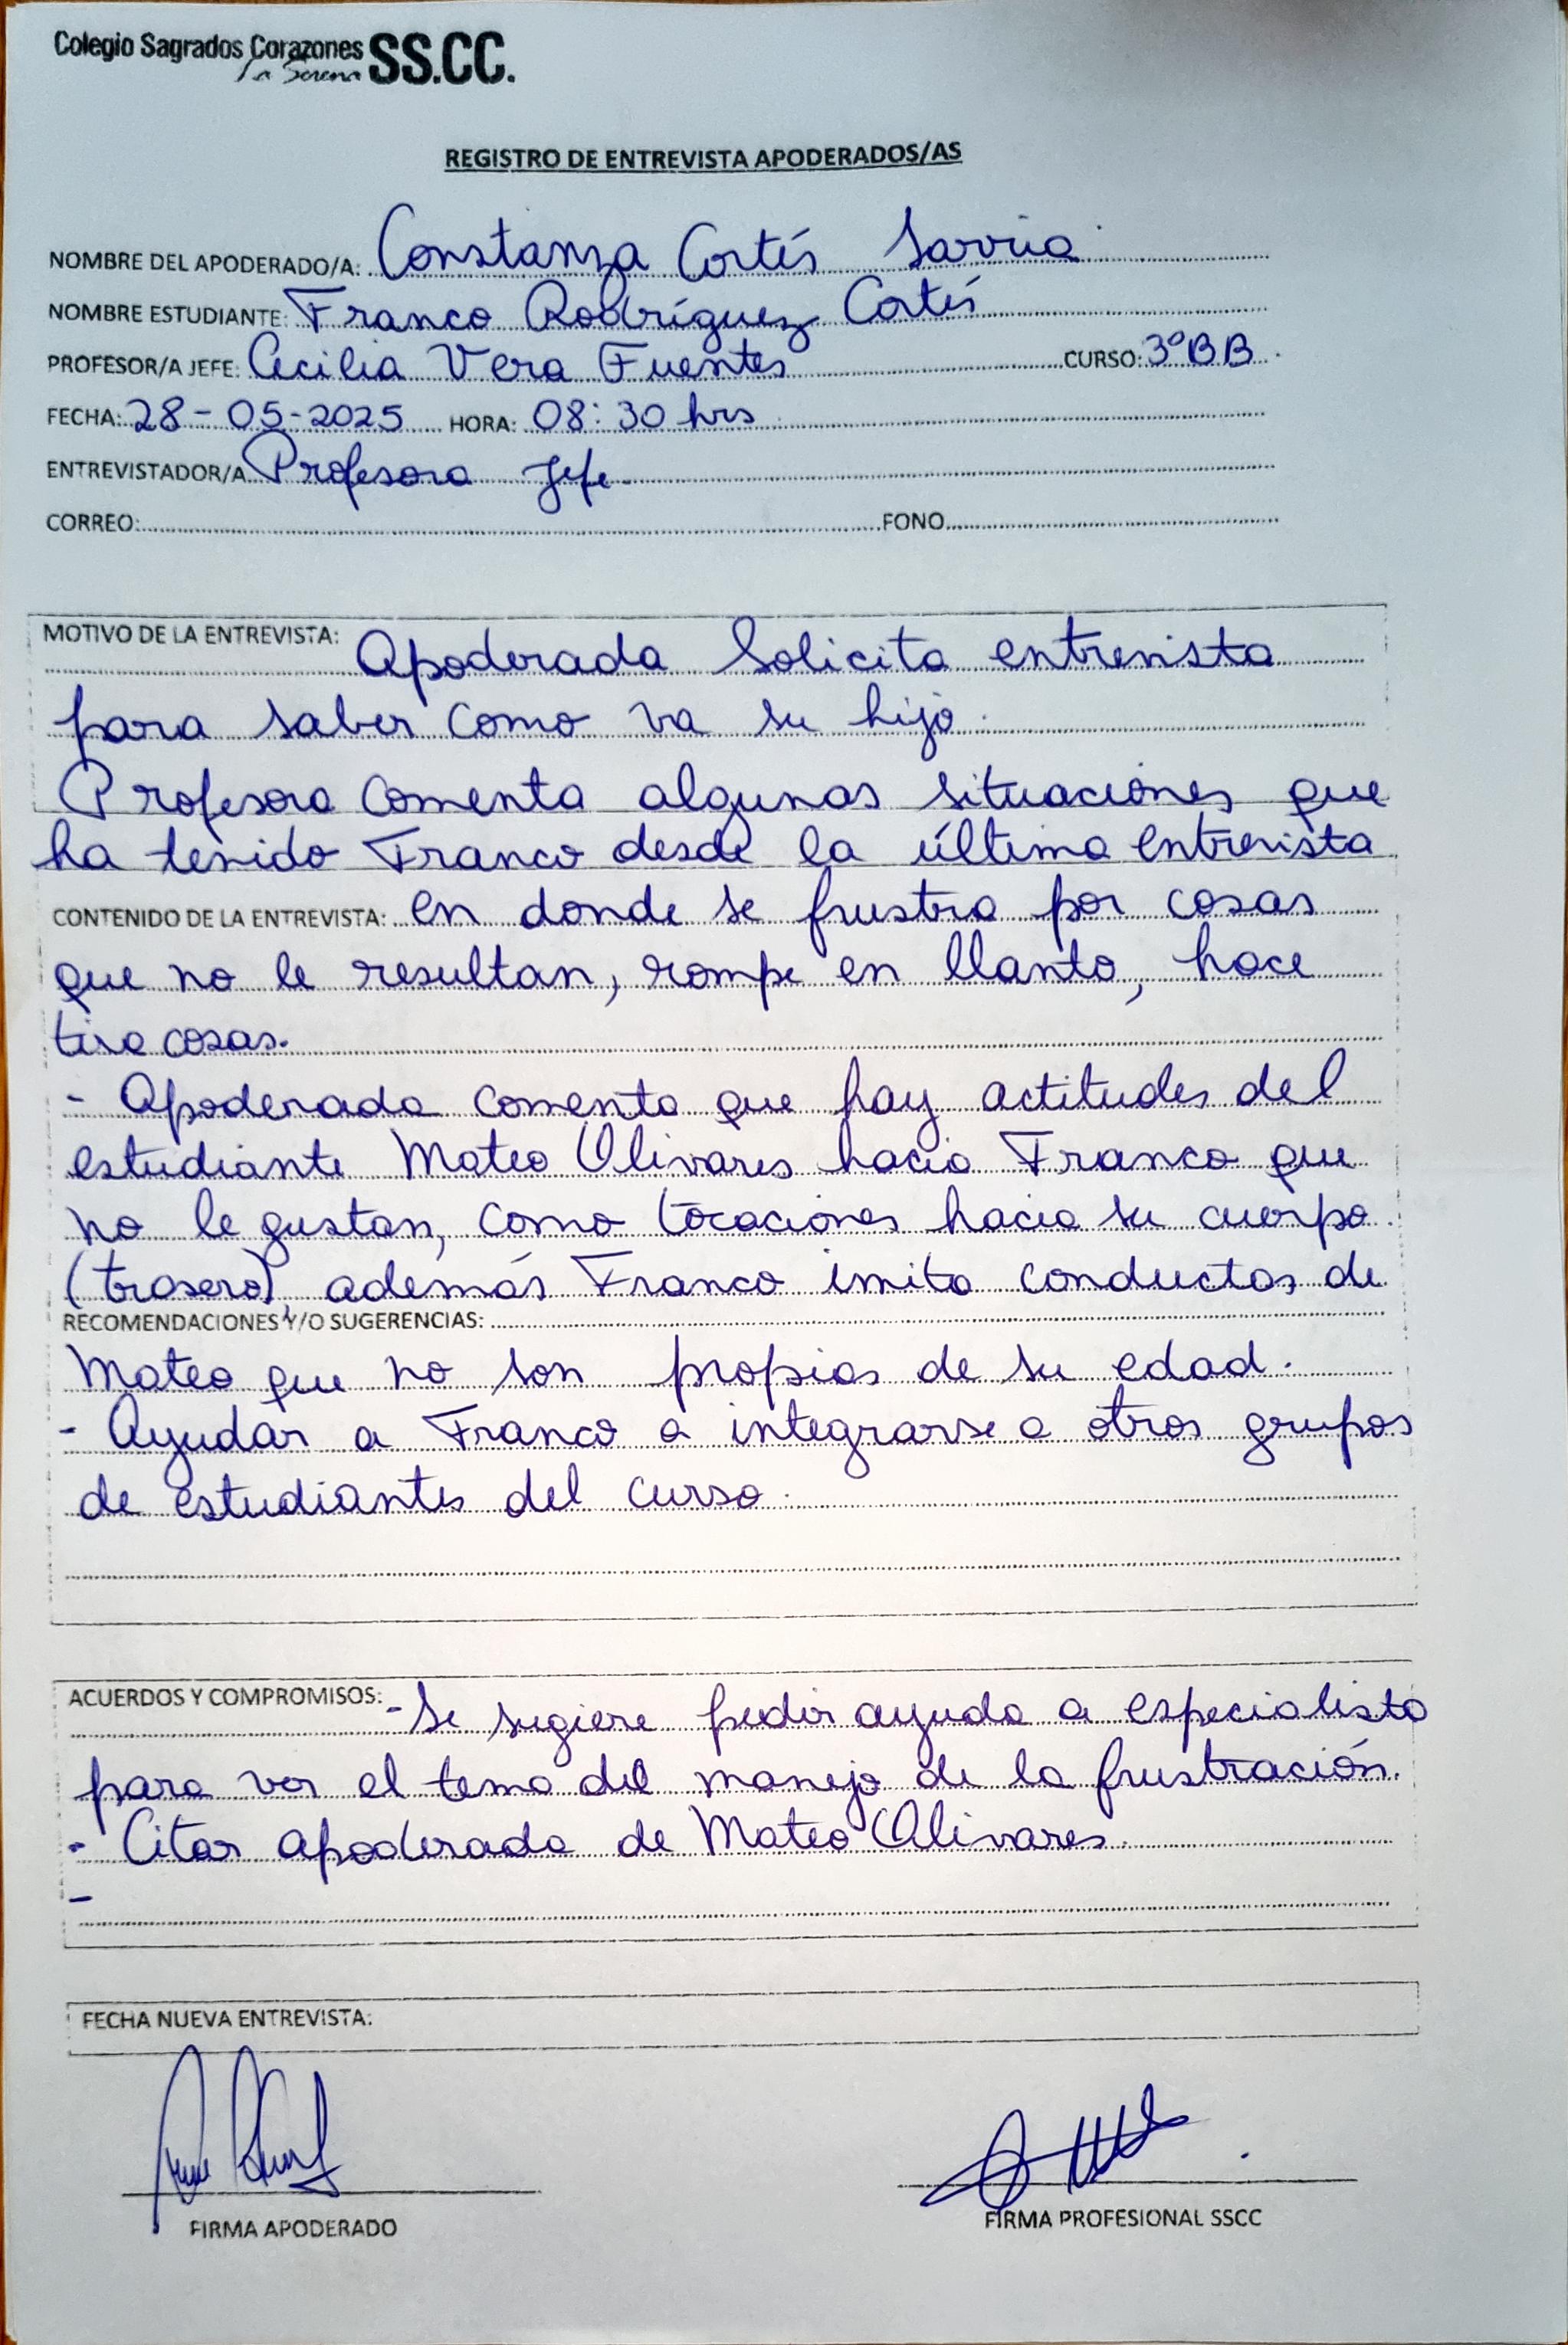 Colegio Sagrados Corazones SS.CC.
La Serena
REGISTRO DE ENTREVISTA APODERADOS/AS
NOMBRE DEL APODERADO/A: Constanza Cortés Sarria
NOMBRE ESTUDIANTE: Franco Rodríguez Cortés
PROFESOR/A JEFE: Cecilia Vera Fuentes CURSO: 3°BB
FECHA: 28-05-2025 HORA: 08:30 hrs
ENTREVISTADOR/A Profesora Jefe.
CORREO: FONO
MOTIVO DE LA ENTREVISTA: Apoderada solicita entrevista
para saber como va su hijo.
Profesora comenta algunas situaciones que
ha tenido Franco desde la última entrevista
CONTENIDO DE LA ENTREVISTA: en donde se frustra por cosas
que no le resultan, rompe en llanto, hace
tira cosas.
- Apoderada comenta que hay actitudes del
estudiante Mateo Olivares hacia Franco que
no le gustan, como tocaciones hacia su cuerpo.
(trasero), además Franco imita conductas de
RECOMENDACIONES Y/O SUGERENCIAS:
Mateo que no son propias de su edad.
- Ayudar a Franco a integrarse a otros grupos
de estudiantes del curso.
ACUERDOS Y COMPROMISOS: - Se sugiere pedir ayuda a especialista
para ver el tema del manejo de la frustración.
- Citar apoderada de Mateo Olivares.
-
FECHA NUEVA ENTREVISTA:
FIRMA APODERADO FIRMA PROFESIONAL SSCC